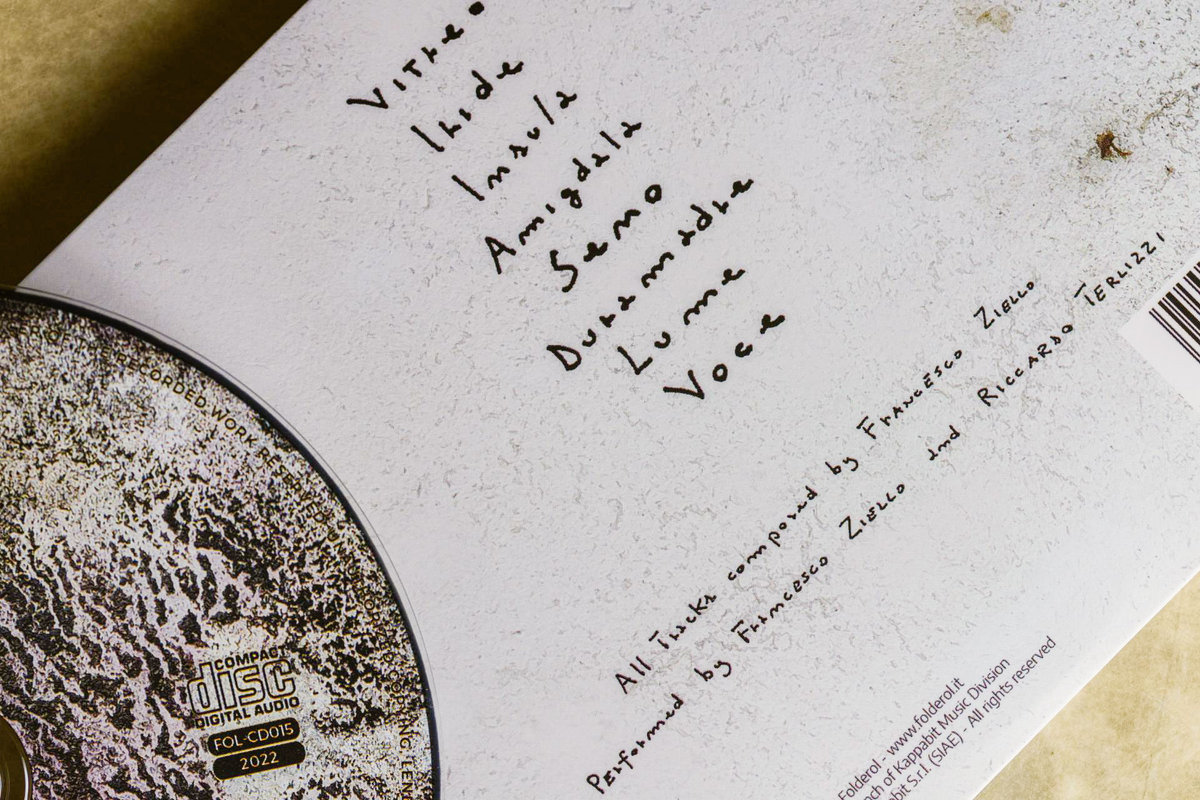 Vitreo
Iride
Insula
Amigdala
Seno
Duramadre
Lume
Voce
All Tracks composed by Francesco Ziello
Performed by Francesco Ziello and Riccardo Terlizzi
Folderol - www.folderol.it
of Kappabit Music Division
S.r.l. (SIAE) - All rights reserved
RECORDED WORK RESERVED
COMPACT
disc
DIGITAL AUDIO
FOL-CD015
2022